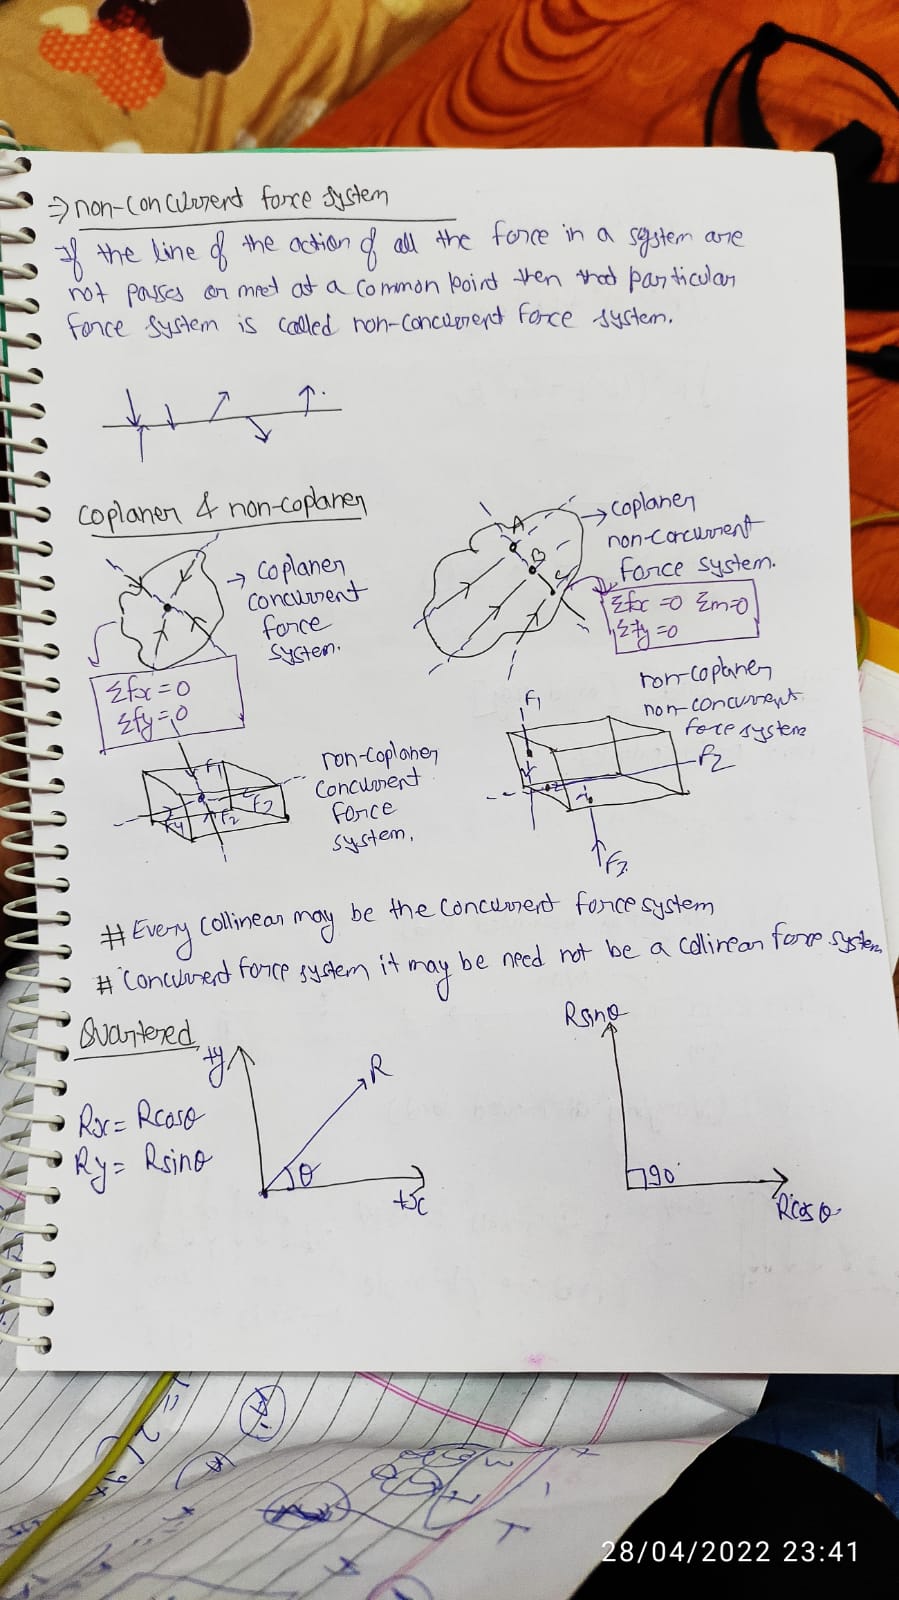 ⇒ non-concurrent force system
If the line of the action of all the force in a system are
not passes or meet at a common point then that particular
force system is called non-concurrent force system.
coplaner & non-coplaner
→ coplaner
concurrent
force
system.
Σfx = 0
Σfy = 0
A
B
C
→ coplaner
non-concurrent
force system.
Σfx = 0 Σm = 0
Σfy = 0
F1
F2
F3
F4
non-coplaner
concurrent
force
system.
F1
F2
F3
non-coplaner
non-concurrent
force system
# Every collinear may be the concurrent force system
# Concurrent force system it may be need not be a collinear force system
Quartered
Rx = Rcosθ
Ry = Rsinθ
+y
R
θ
+x
Rsinθ
90°
Rcosθ
28/04/2022 23:41